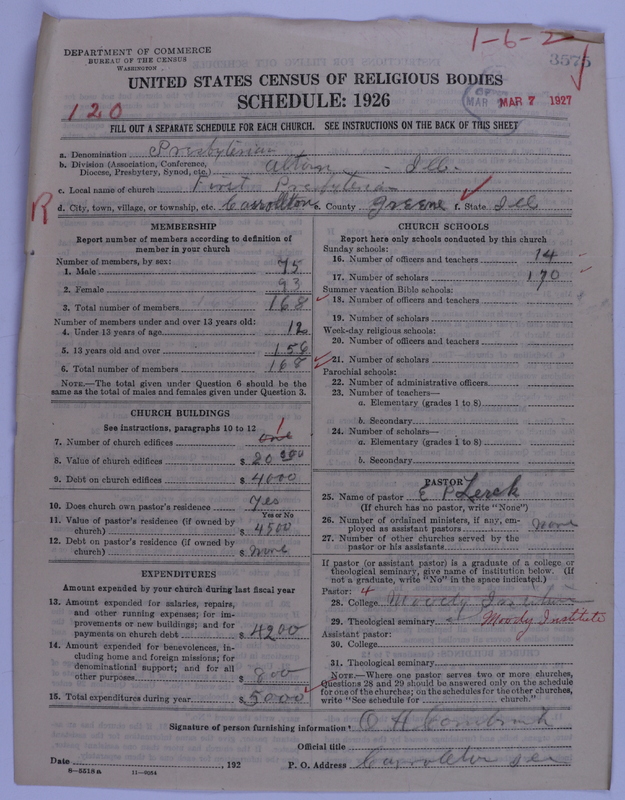 1-6-2
3575
DEPARTMENT OF COMMERCE
BUREAU OF THE CENSUS
WASHINGTON
UNITED STATES CENSUS OF RELIGIOUS BODIES
SCHEDULE: 1926
120
MAR
MAR 7 1927
FILL OUT A SEPARATE SCHEDULE FOR EACH CHURCH. SEE INSTRUCTIONS ON THE BACK OF THIS SHEET
a. Denomination Presbyterian
b. Division (Association, Conference, Diocese, Presbytery, Synod, etc.) Alton - Ill.
c. Local name of church First Presbyterian
R
d. City, town, village, or township, etc. Carrollton e. County Greene f. State Ill
MEMBERSHIP
Report number of members according to definition of
member in your church
Number of members, by sex:
1. Male 75
2. Female 93
3. Total number of members 168
Number of members under and over 13 years old:
4. Under 13 years of age 12
5. 13 years old and over 156
6. Total number of members 168
NOTE.—The total given under Question 6 should be the
same as the total of males and females given under Question 3.
CHURCH BUILDINGS
See instructions, paragraphs 10 to 12
7. Number of church edifices one 1
8. Value of church edifices $ 20000
9. Debt on church edifices $ 4000
10. Does church own pastor's residence Yes
Yes or No
11. Value of pastor's residence (if owned by
church) $ 4500
12. Debt on pastor's residence (if owned by
church) $ None
EXPENDITURES
Amount expended by your church during last fiscal year
13. Amount expended for salaries, repairs,
and other running expenses; for im-
provements or new buildings; and for
payments on church debt $ 4200
14. Amount expended for benevolences, in-
cluding home and foreign missions; for
denominational support; and for all
other purposes $ 800
15. Total expenditures during year $ 5000
CHURCH SCHOOLS
Report here only schools conducted by this church
Sunday schools:
16. Number of officers and teachers 14
17. Number of scholars 170
Summer vacation Bible schools:
18. Number of officers and teachers
19. Number of scholars
Week-day religious schools:
20. Number of officers and teachers
21. Number of scholars
Parochial schools:
22. Number of administrative officers
23. Number of teachers—
a. Elementary (grades 1 to 8)
b. Secondary
24. Number of scholars—
a. Elementary (grades 1 to 8)
b. Secondary
PASTOR
25. Name of pastor E P
(If church has no pastor, write "None")
26. Number of ordained ministers, if any, em-
ployed as assistant pastors None
27. Number of other churches served by the
pastor or his assistants
If pastor (or assistant pastor) is a graduate of a college or
theological seminary, give name of institution below. (If
not a graduate, write "No" in the space indicated.)
Pastor: 4
28. College Moody Institute
29. Theological seminary Moody Institute
Assistant pastor:
30. College
31. Theological seminary
NOTE.—Where one pastor serves two or more churches,
Questions 28 and 29 should be answered only on the schedule
for one of the churches; on the schedules for the other churches,
write "See schedule for church."
Signature of person furnishing information O H
Official title
Date , 192 P. O. Address Carrollton Ill
8-5518a 11-9084